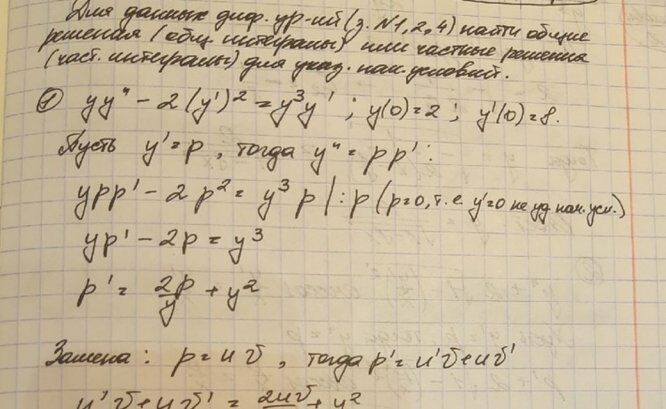 Для данных диф. ур-ий (з. №1, 2, 4) найти общие
решения (общ. интегралы) или частные решения
(част. интегралы) для указ. нач. условий.
① yy" - 2(y')² = y³y' ; y(0)=2 ; y'(0)=8.
Пусть y'=p, тогда y"=pp':
ypp' - 2p² = y³p |:p (p=0, т.е. y'=0 не уд. нач. усл.)
yp' - 2p = y³
p' = 2p/y + y²
Замена: p=uv, тогда p'=u'v+uv'
u'v+uv' = 2uv + y²